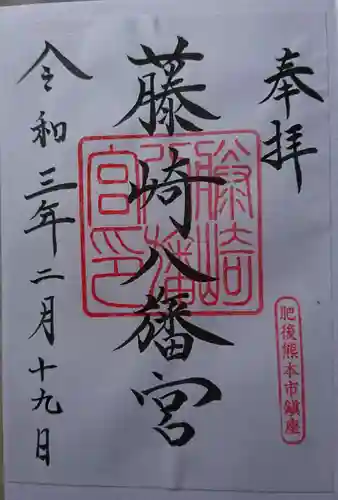 奉拝
肥後熊本市鎮座
藤崎八旛宮
藤崎八旛宮印
令和三年二月十九日